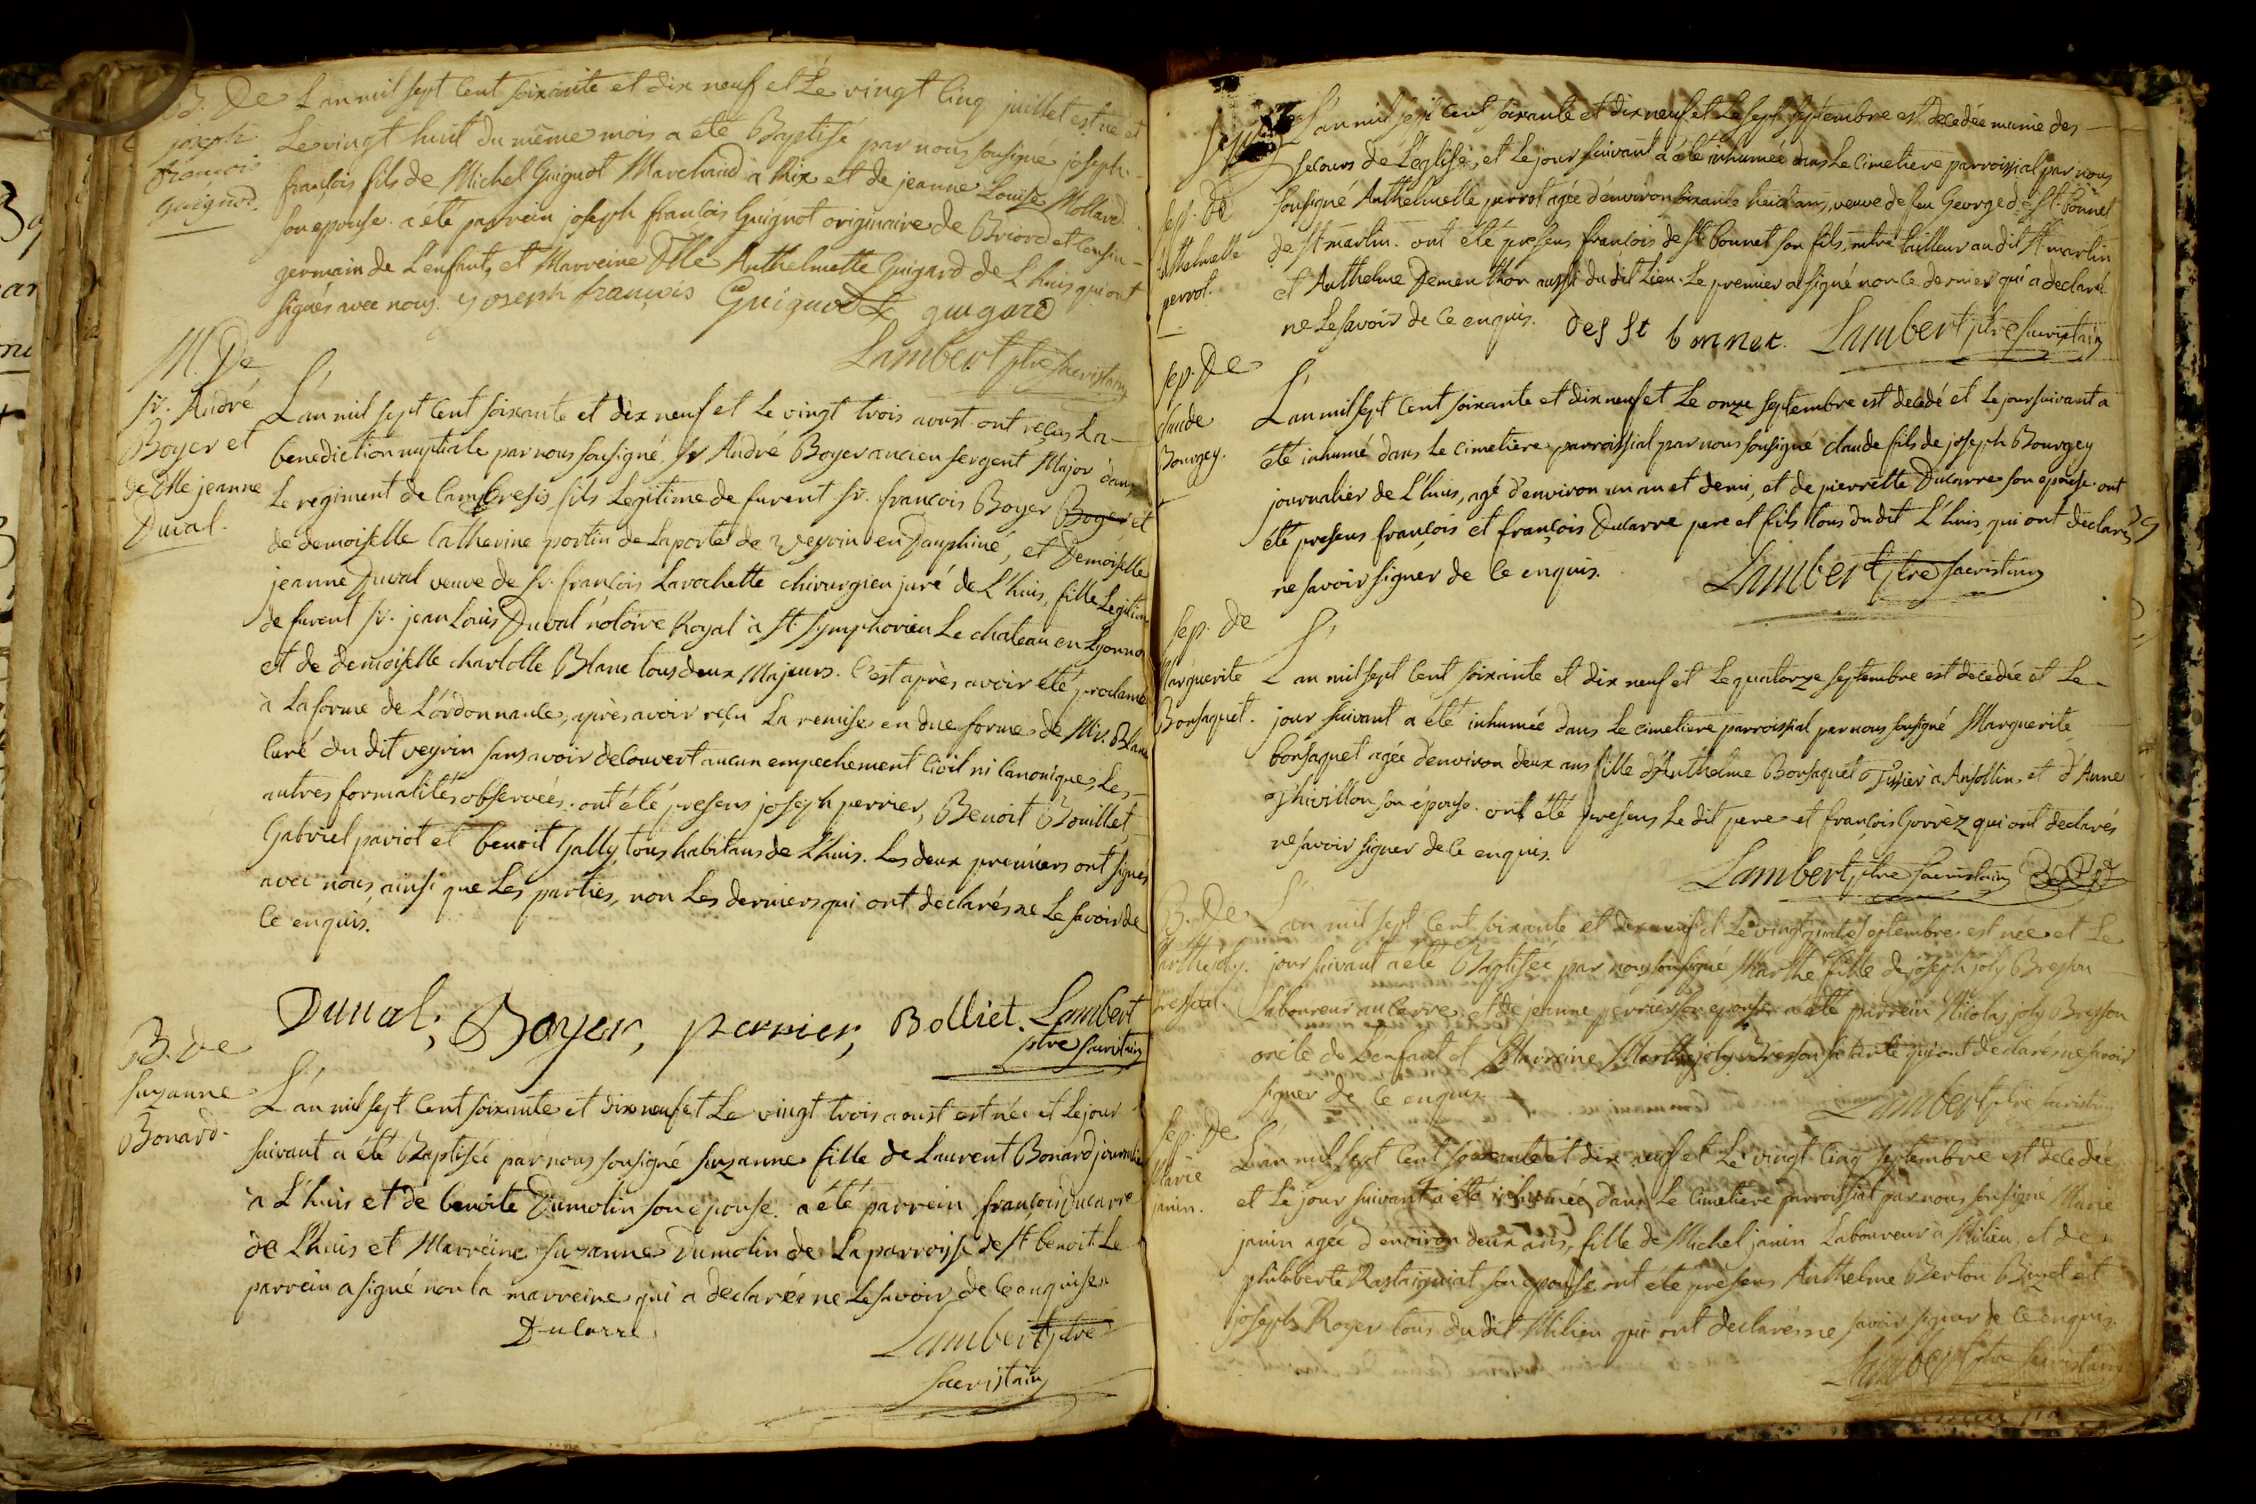 B. De
joseph
françois
Guignod.
L'an mil sept Cent soixante et dix neuf et Le vingt Cinq juillet est né et
Le vingt huit du même mois a été Baptisé par nous sousigné joseph-
françois fils de Michel Guignot Marchand à Rix et de jeanne Louise Mollard
son epouse. a été parrein joseph francois Guignot originaire de Briord et Cousin-
germain de L'enfant, et Marreine Dlle Anthelmette Guigard de L'huis qui ont
signés avec nous. joseph francois Guignod guigard
Lambert ptre sacristain
M. De
sr. André
Boyer et
de Dlle jeanne
Duval.
L'an mil sept Cent soixante et dix neuf et Le vingt trois aoust ont reçus La-
benediction nuptiale par nous sousigné, sr André Boyer ancien sergent Major dans
Le regiment de Cambresis fils Legitime de furent sr. françois Boyer Boyer et
de demoiselle Catherine portin de Laporte de veyrin en Dauphiné, et Demoiselle
jeanne Duval veuve de sr. françois Larochette chirurgien juré de L'huis, fille Legitim
de furent sr. jean Louis Duval notaire Royal à St symphorien Le chateau en Lyonno
et de demoiselle charlotte Blanc tous deux Majeurs. C'est après avoir été proclamé
à La forme de L'ordonnance, après avoir reçu La remise en due forme de Mr. Blanc
Curé du dit veyrin sans avoir decouvert aucun empechement Civil ni Canonique, Les-
autres formalités observées. ont été presens joseph perrier, Benoit Bouillet,
Gabriel pariot et benoit Gally tous habitans de L'huis. Les deux premiers ont signés
avec nous ainsi que Les parties, non Les derniers qui ont declarés ne Le savoir de
Ce enquis.
Duual, Boyer, perrier, Bolliet. Lambert
ptre sacristain
B. De
suzanne
Bonard.
L'an mil sept Cent soixante et dix neuf et Le vingt trois aoust est née et Le jour
suivant a été Baptisée par nous sousigné suzanne fille de Laurent Bonard journalier
à L'huis et de benoite Dumolin son epouse. a été parrein françois Ducarre
de L'huis et Marreine suzanne Dumolin de La parroisse de St benoit. Le
parrein a signé non la marreine qui a declarée ne Le savoir de Ce enquise.
Ducarre
Lambert ptre
sacristain
Sep. De
Anthelmette
perrot.
L'an mil sept Cent soixante et dix neuf et Le sept septembre est Decedée munie des-
secours de L'eglise, et Le jour suivant a été inhumée dans Le cimetiere parroissial par nous
sousigné Anthelmette perrot agée d'environ soixante huit ans, veuve de feu George de St. bonnet
de St martin. ont été presens françois de St bonnet son fils, mtre tailleur au dit St martin
et Anthelme Dementhon aussi du dit Lieu. Le premier a signé non Le dernier qui a declaré
ne Le savoir de Ce enquis. des st bonnet. Lambert ptre sacristain
sep. De
claude
Bourgey.
L'an mil sept Cent soixante et dix neuf et Le onze septembre est decedé et Le jour suivant a
été inhumé dans Le cimetiere parroissial par nous sousigné claude fils de joseph Bourgey
journalier de L'huis, agé d'environ un an et demi, et de pierrette Ducarre son epouse. ont
été presens françois et françois Ducarre pere et fils tous du dit L'huis, qui ont declarés
ne savoir signer de Ce enquis. Lambert ptre sacristain
sep. De
Marguerite
Bonsaquet.
L'an mil sept Cent soixante et dix neuf et Le quatorze septembre est decedée et Le-
jour suivant a été inhumée dans Le cimetiere parroissial par nous sousigné Marguerite
bonsaquet agée d'environ deux ans fille d'Anthelme Bonsaquet Tissier à Ansollin, et d'Anne
phivillon son épouse. ont été presens Le dit pere et françois Gorrèz qui ont declarés
ne savoir signer de Ce enquis.
Lambert ptre sacristain
B. De
Marthe joly
Bresson.
L'an mil sept Cent soixante et dix neuf et Le vingt septembre est née et Le
jour suivant a été Baptisée par nous sousigné Marthe fille de joseph joly Bresson
Laboureur au Carre, et de jeanne perrier son epouse. a été parrein Nicolas joly Bresson
oncle de L'enfant et Marreine Marthe joly Bresson sa tante qui ont declarés ne savoir
signer de Ce enquis.
Lambert ptre sacristain
Sep. De
Marie
janin.
L'an mil sept Cent soixante et dix neuf et Le vingt Cinq septembre est decedée
et Le jour suivant a été inhumée dans Le cimetiere parroissial par nous sousigné Marie
janin agée d'environ deux ans, fille de Michel janin Laboureur à Milieu, et de
philiberte son epouse. ont été presens Anthelme Berlon Binet et
joseph Royer tous du dit Milieu qui ont declarés ne savoir signer de Ce enquis.
Lambert ptre sacristain